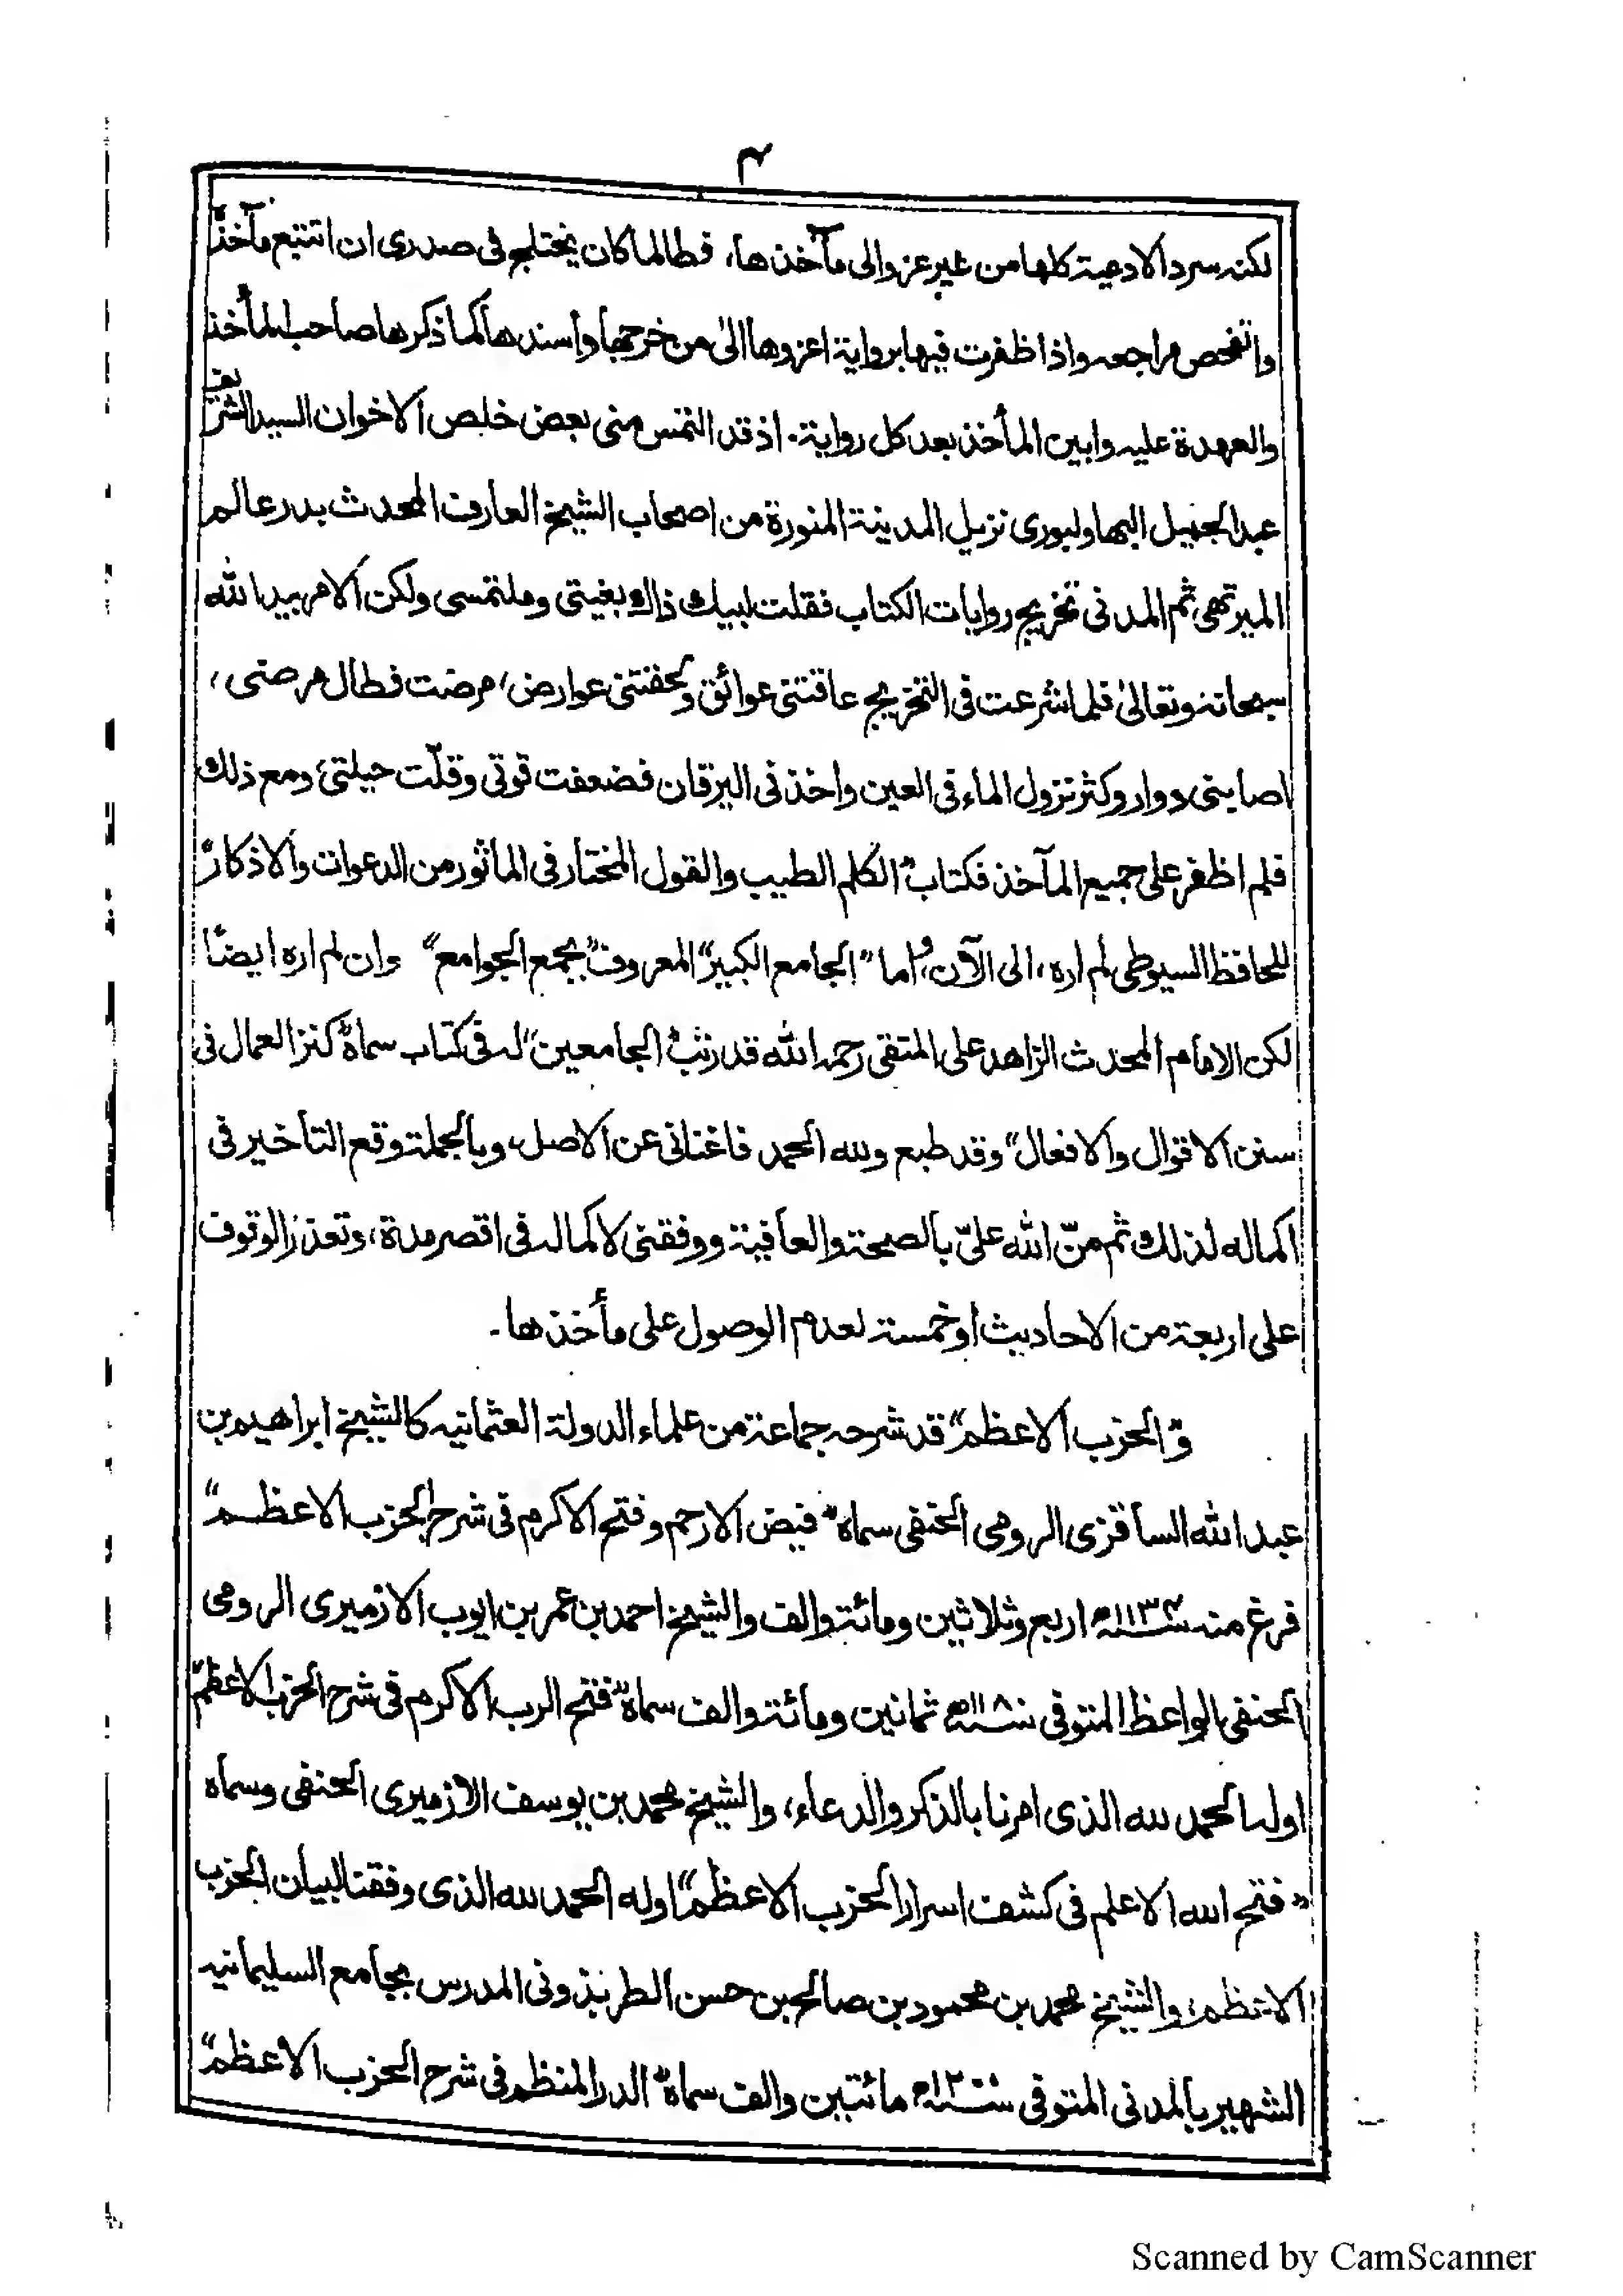 ۴
لكنه سرد الادعية كلها من غير عزو الى مآخذها، فطالما كان يختلج فى صدرى ان اتتبع مآخذه
واتفحص مراجعه واذا ظفرت فيها برواية اعزوها الىٰ من خرجها وأسندها كما ذكرها صاحب المأخذ
والعهدة عليه وابين المأخذ بعد كل رواية. اذ قد التمس منى بعض خلص الاخوان السيد الشريف
عبد الجميل البهاولبورى نزيل المدينة المنورة من اصحاب الشيخ العارف المحدث بدر عالم
الميرتهى ثم المدنى تخريج روايات الكتاب فقلت لبيك ذاك بغيتى وملتمسى ولكن الامر بيد الله
سبحانه وتعالىٰ فلما شرعت فى التخريج عاقتنى عوائق ولحقتنى عوارض، مرضت فطال مرضى،
اصابنى دوار وكثر نزول الماء فى العين واخذنى اليرقان فضعفت قوتى وقلّت حيلتى، ومع ذلك
فلم اظفر على جميع المآخذ فكتاب "الكلم الطيب والقول المختار فى الماثور من الدعوات والاذكار"
للحافظ السيوطى لم اره، الى الآن، واما "الجامع الكبير" المعروف "بجمع الجوامع" وان لم اره ايضًا
لكن الامام المحدث الزاهد على المتقى رحمه الله قد رتب "الجامعين" له فى كتاب سماه "كنز العمال فى
سنن الاقوال والافعال" وقد طبع ولله الحمد فاغنانى عن الاصل، وبالجملة وقع التأخير فى
اكماله لذلك ثم منّ الله علىّ بالصحة والعافية ووفقنى لاكماله فى اقصر مدة، وتعذر الوقوف
على اربعة من الاحاديث أو خمسة لعدم الوصول على مأخذها.
و"الحزب الاعظم" قد شرحه جماعة من علماء الدولة العثمانيه كالشيخ ابراهيم بن
عبد الله الساقزى الرومى الحنفى سماه "فيض الارحم وفتح الاكرم فى شرح الحزب الاعظم"
فرغ منه سنة ۱۱۳۴ھ اربع وثلاثين ومائة والف والشيخ احمد بن عمر بن ايوب الازميرى الرومى
الحنفى الواعظ المتوفى سنة ۱۱۸۰ھ ثمانين ومائة والف سماه "فتح الرب الاكرم فى شرح الحزب الاعظم"
اوله الحمد لله الذى امرنا بالذكر والدعاء، والشيخ محمد بن يوسف الازميرى الحنفى وسماه
"فتح الله الاعلم فى كشف اسرار الحزب الاعظم" اوله الحمد لله الذى وفقنا لبيان الحزب
الاعظم، والشيخ محمد بن محمود بن صالح بن حسن الطربزونى المدرس بجامع السليمانيه
الشهير بالمدنى المتوفى سنة ۱۲۰۰ھ مائتين والف سماه "الدر المنظم فى شرح الحزب الاعظم"
Scanned by CamScanner